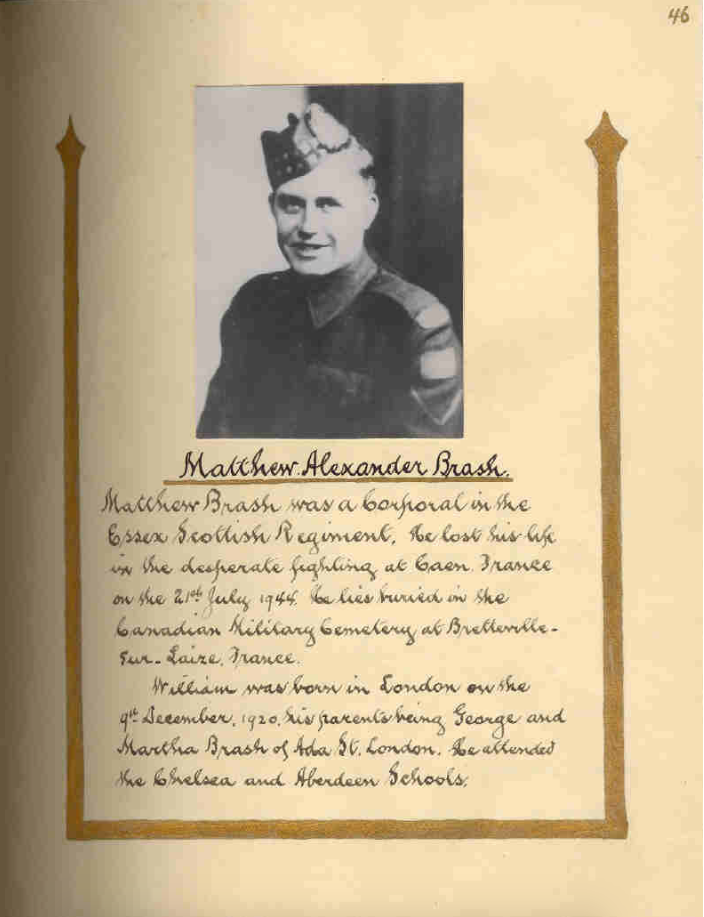 46
Matthew Alexander Brash.
Matthew Brash was a Corporal in the
Essex Scottish Regiment. He lost his life
in the desperate fighting at Caen, France
on the 21st July 1944. He lies buried in the
Canadian Military Cemetery at Bretteville-
Sur-Laize, France.
William was born in London on the
9th December, 1920, his parents being George and
Martha Brash of Ada St. London. He attended
the Chelsea and Aberdeen Schools.